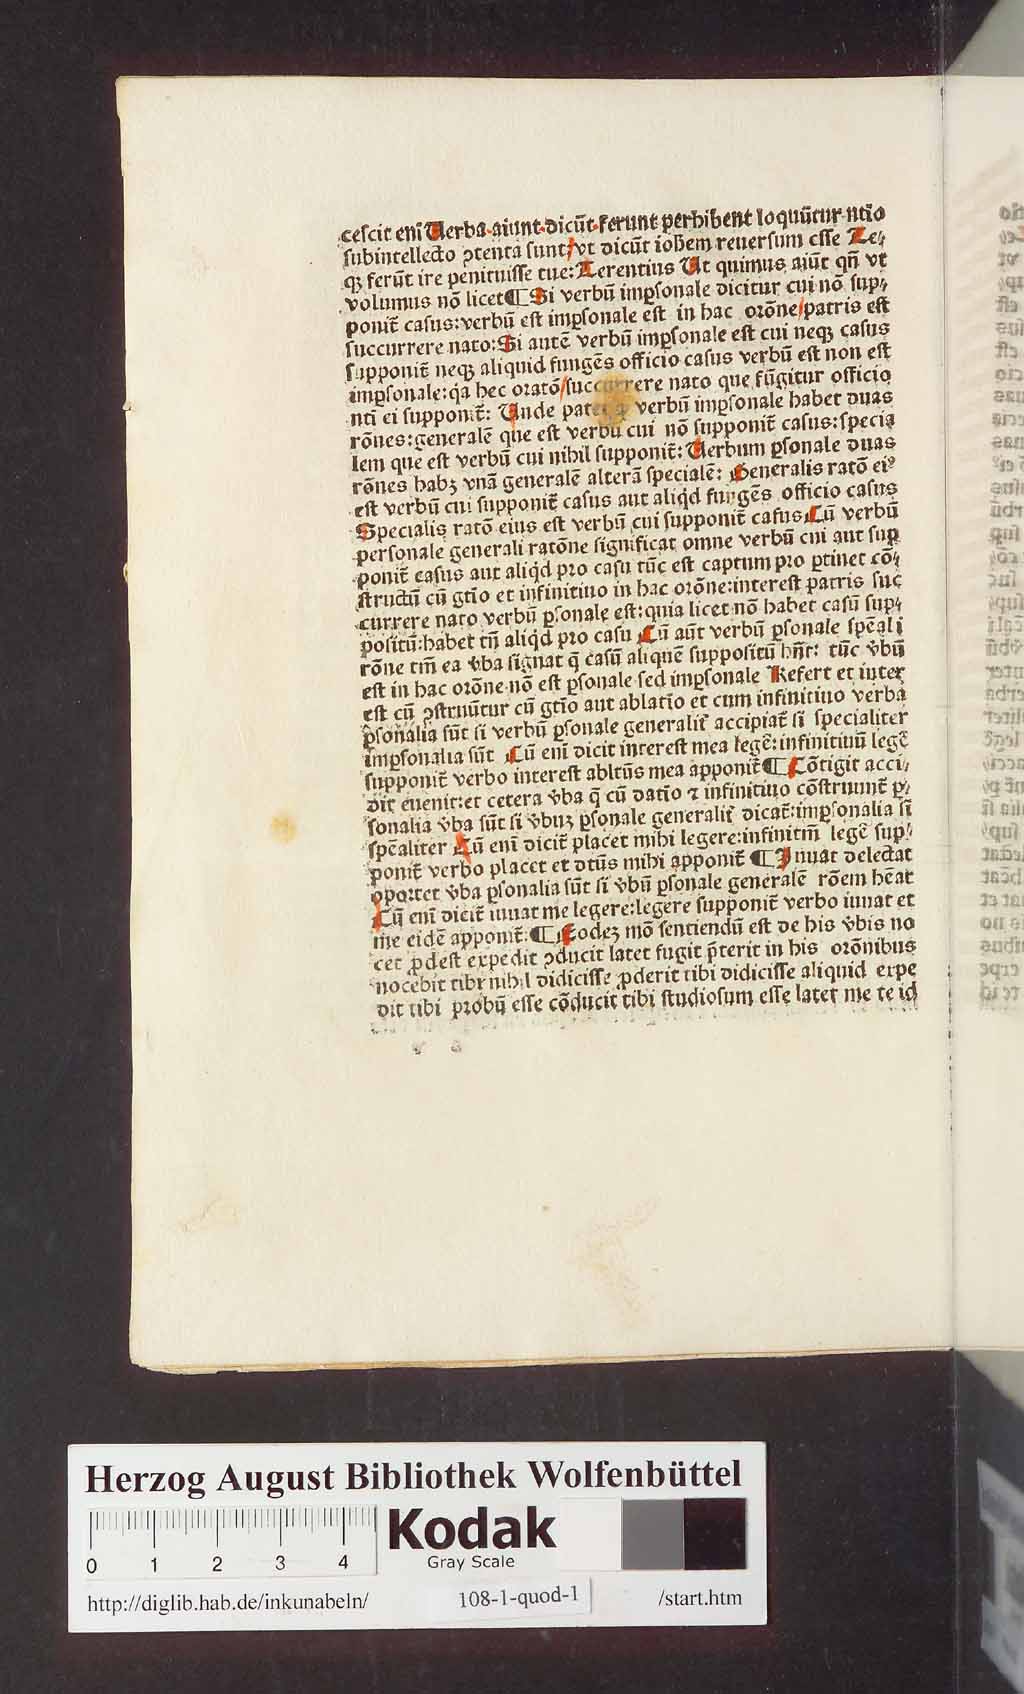 cescit eni Uerba·aiunt·dicūt·ferunt perhibent loquūtur·ntio
subintellecto ꝯtenta sunt/vt dicūt iobem reuersum esse Te⸗
qꝫ ferūt ire penituisse tue: Terentius Ut quimus aiūt qn̄ vt
volumus nō licet ¶ Si verbū imp̱sonale dicitur cui nō sup⸗
ponit̄ casus: verbū est imp̱sonale est in hac orōne/patris est
succurrere nato: Si autē verbū imp̱sonale est cui neqꝫ casus
supponit̄ neqꝫ aliquid fungēs officio casus verbū est non est
imp̱sonale: q̇a hec oratō/succurrere nato que fūgitur officio
nti ei supponit̄: Unde patet verbū imp̱sonale habet duas
rōnes: generalē que est verbū cui nō supponit̄ casus: specia
lem que est verbū cui nihil supponit̄: Uerbum p̱sonale duas
rōnes habꝫ vnā generalē alterā specialē: Generalis ratō eiꝰ
est verbū cui supponit̄ casus aut aliqd fungēs officio casus
Specialis ratō eius est verbū cui supponit̄ casus Cū verbū
personale generali ratōne significat omne verbū cui aut sup
ponit̄ casus aut aliqd pro casu tūc est captum pro p̱tinet cō⸗
structū cū gtio et infinitiuo in hac orōne: interest patris suc
currere nato verbū p̱sonale est: quia licet nō habet casū sup⸗
positū: habet tn̄ aliqd pro casu Cū aūt verbū p̱sonale spēali
rōne tm̄ ea v̄ba signat q̄ casū aliquē suppositū hn̄t: tūc v̄bū
est in hac orōne nō est p̱sonale sed imp̱sonale Refert et inter
est cū ꝯstruūtur cū gtio aut ablatio et cum infinitiuo verba
p̱sonalia sūt si verbū p̱sonale generalit̄ accipiat̄ si specialiter
imp̱sonalia sūt Cū eni dicit interest mea legē: infinitiuū legē
supponit̄ verbo interest abltūs mea apponit̄ ¶ Cōtigit acci⸗
dit euenit: et cetera v̄ba q̄ cū datio ⁊ infinitiuo cōstruunt̄ p̱⸗
sonalia v̄ba sūt si v̄buꝫ p̱sonale generalit̄ dicat̄: imp̱sonalia si
spēaliter Cū eni dicit̄ placet mihi legere: infinitiu legē sup⸗
ponit̄ verbo placet et dtūs mihi apponit̄ ¶ Iuuat delectat
oportet v̄ba p̱sonalia sūt si v̄bū p̱sonale generalē rōem hēat
Cū eni dicit̄ iuuat me legere: legere supponit̄ verbo iuuat et
me eidē apponit̄: ¶ Eodeꝫ mō sentiendū est de his v̄bis no
cet ꝓdest expedit ꝯducit latet fugit p̄terit in his orōnibus
nocebit tibi nihil didicisse ꝓderit tibi didicisse aliquid expe
dit tibi probū esse cōducit tibi studiosum esse latet me te id
Herzog August Bibliothek Wolfenbüttel
0 1 2 3 4
Kodak
Gray Scale
http://diglib.hab.de/inkunabeln/ 108-1-quod-1 /start.htm